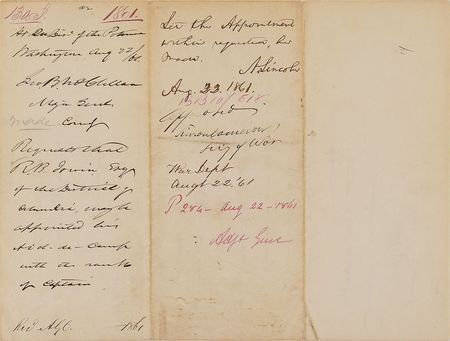 1861.
Washington Aug 22/61.
Geo B. McClellan
Majr Genl
made Comg
Requests that
R.B. Irwin Esq
of the District of
Columbia, may be
appointed his
Aid-de-Camp
with the rank
of Captain
Recd A.G.O. 1861
Let the Appointment
within requested, be
made.
A. Lincoln
Aug. 22. 1861.
Approved
Simon Cameron
Secy of War
War Dept
Augt 22. '61
P 284 - Aug 22 - 1861
Adjt Genl